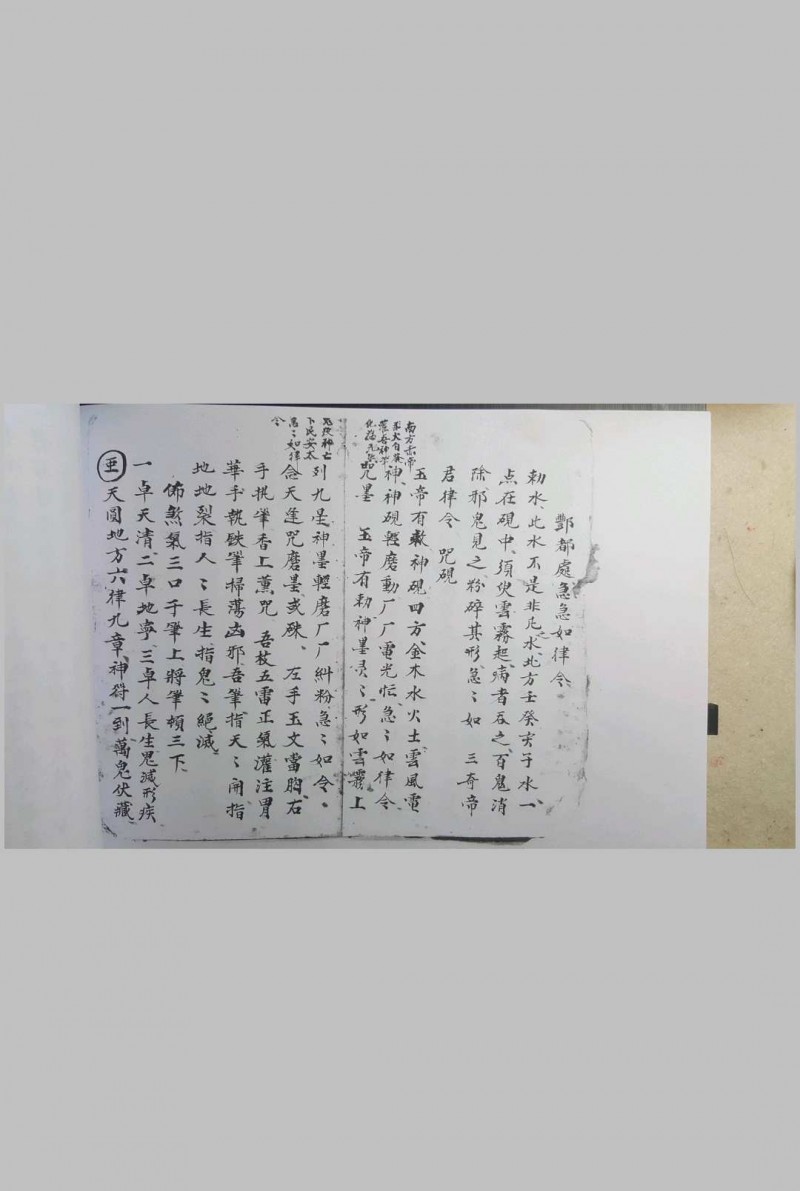 酆都處急急如律令
勅水、此水不是非凡水、北方壬癸亥子水、一
点在硯中、須臾雲霧起、病者吞之、百鬼消
除、邪鬼見之、粉碎其形、急〻如　三奇帝
君律令　咒硯
玉帝有敕、神硯四方、金木水火土、雲風電
神、神硯輕磨動、厂厂電光忙、急〻如律令
咒墨　玉帝有勅、神墨灵〻、形如雲霧、上
南方
列九星、神墨輕磨、厂厂糾粉、急〻如令。
念天逢咒磨墨或硃、左手玉文當胸、右
手提肈香上薰咒　吾枝五雷正氣灌注冐
華、手執鉄肈、掃蕩凶邪、吾肈指天〻開、指
地地裂、指人〻長生、指鬼〻絕滅、
佈煞氣三口于肈上、將肈頓三下、
一卓天清、二卓地寧、三卓人長生鬼滅形疾
天圓地方、六律九章、神符一到、萬鬼伏藏、
下民安太
急〻如律
令